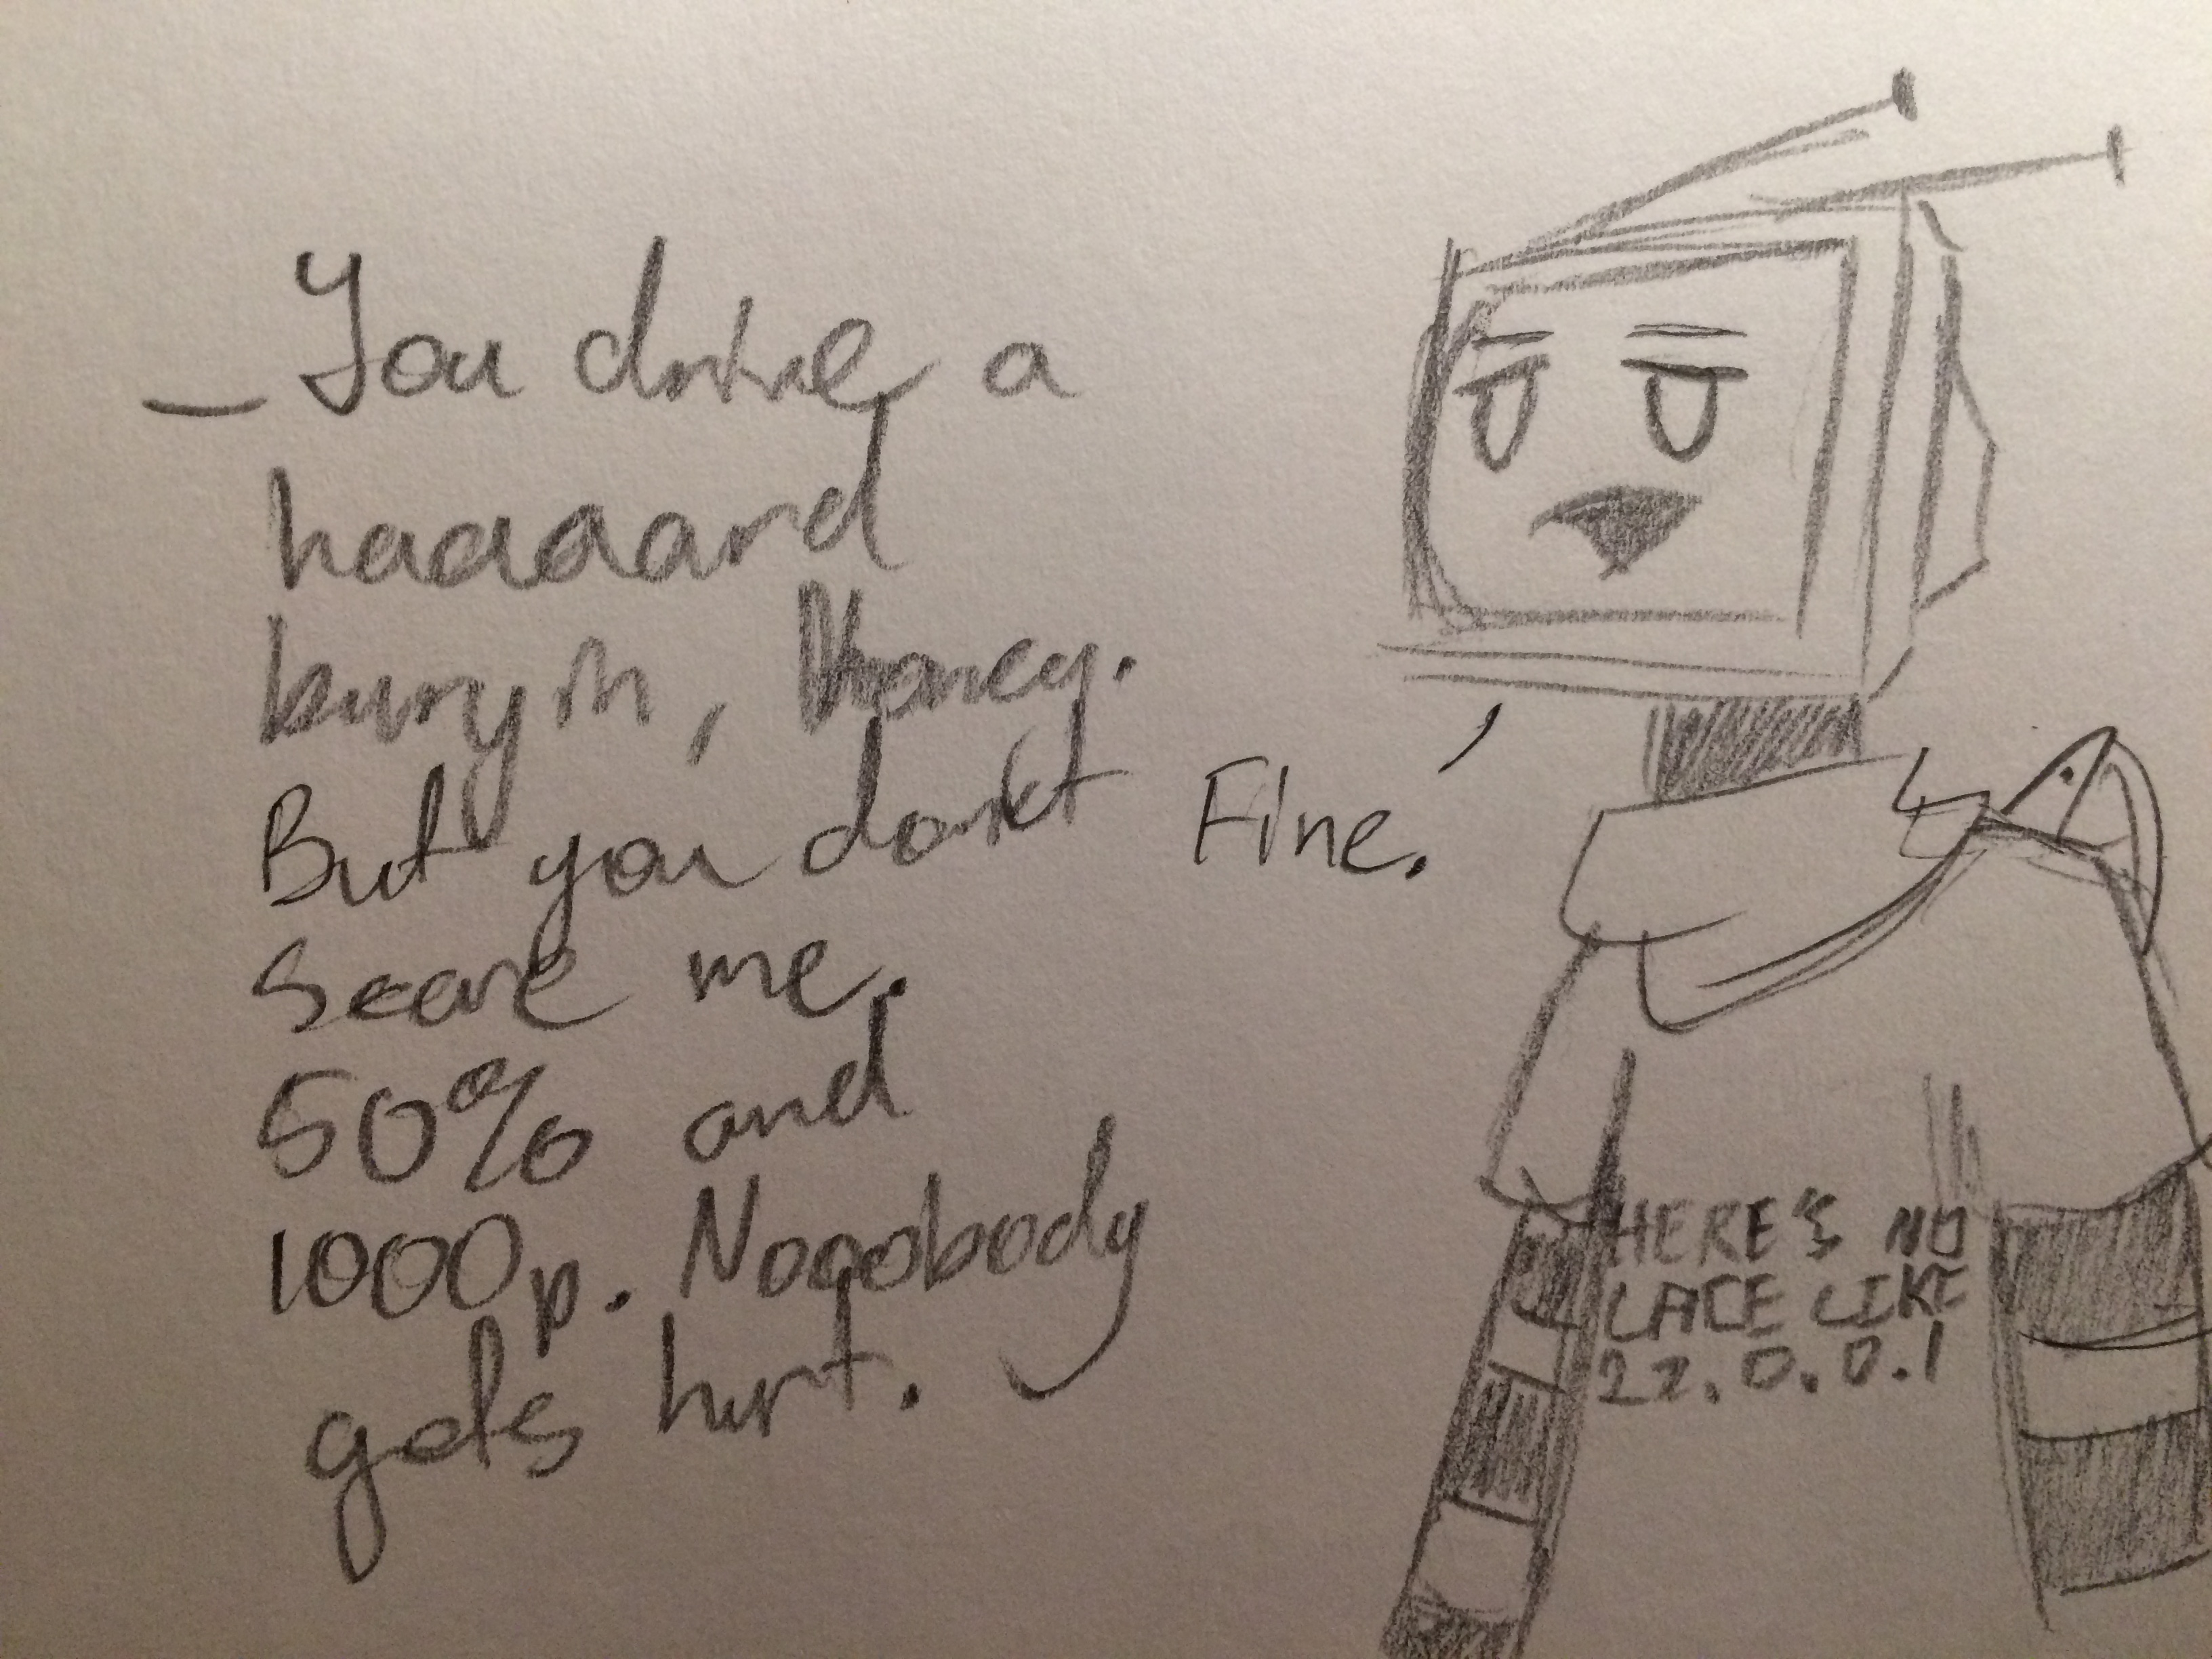 _ You drive a
haaaard
buryin, Honey.
But you don't
scare me.
50% and
1000p. Nooobody
gets hurt.
Fine.
HERE'S NO
LACE LIKE
27.0.0.1